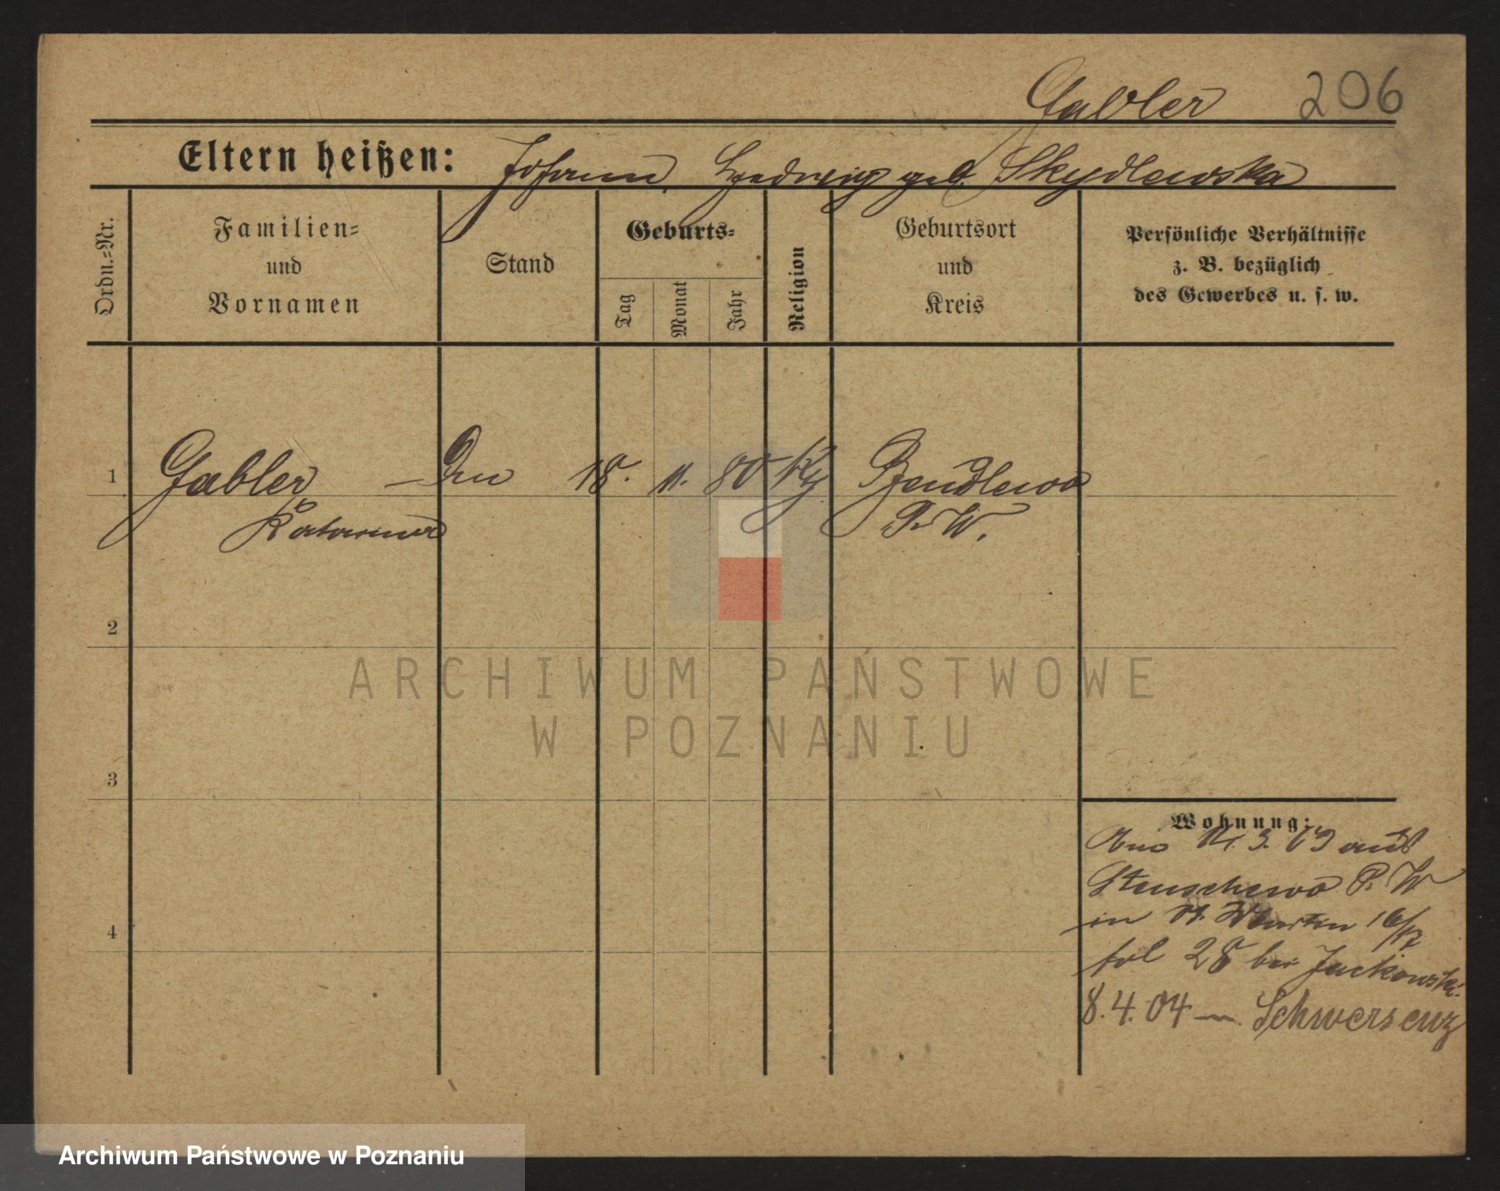 Gabler 206
Eltern heißen: Johann, Hedwig geb. Skydlewska
Ordn.-Nr.
Familien-
und
Vornamen
Stand
Geburts-
Tag
Monat
Jahr
Religion
Geburtsort
und
Kreis
Persönliche Verhältnisse
z. B. bezüglich
des Gewerbes u. s. w.
1 Gabler 18. 11. 80
P. W.
2
3
4
ARCHIWUM PAŃSTWOWE
W POZNANIU
Wohnung:
3. 03 aus
Stenschewo P. W
in St. Martin 16/17
28 bei Jackowski
8.4.04 Schwersenz
Archiwum Państwowe w Poznaniu